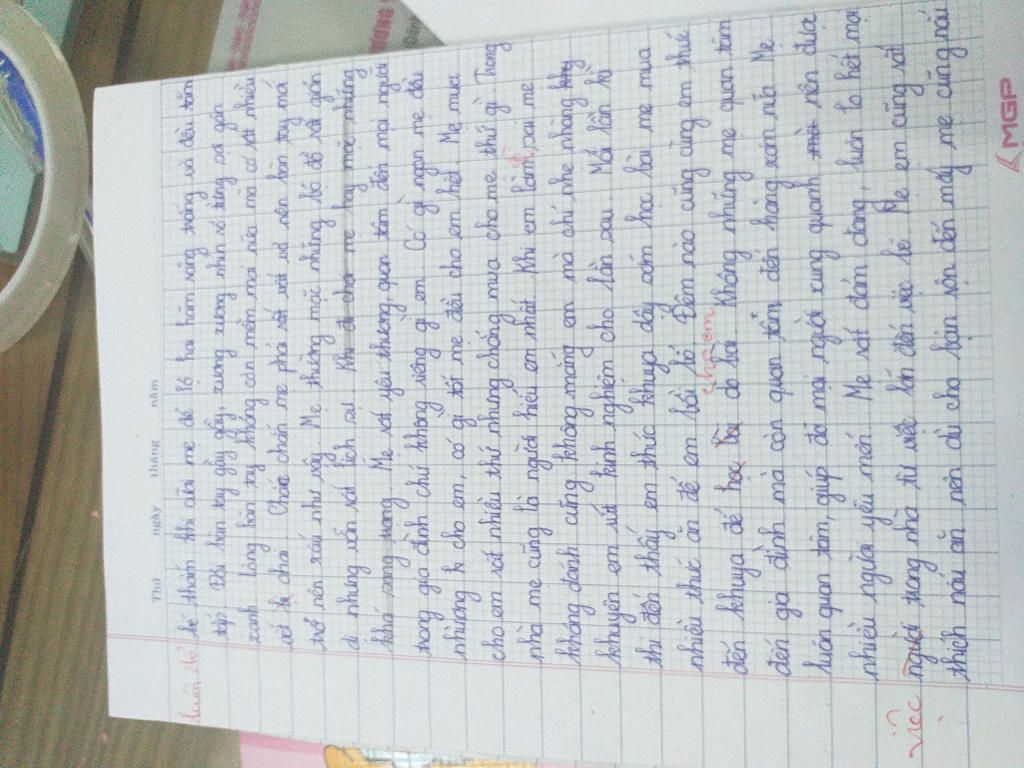 Thứ ngày tháng năm
luôn đỏ
bé thắm thì cười mẹ để lộ hai hàm răng trắng và đều tăm
tắp. Đôi bàn tay gầy gầy, xương xương nhìn rõ từng sợi gân
xanh. Lòng bàn tay không còn mềm mại nữa mà có rất nhiều
vết bị chai. Chắc chắn mẹ phải rất vất vả nên bàn tay mới
trở nên xấu như vậy. Mẹ thường mặc những bộ đồ rất giản
dị nhưng vẫn rất lịch sự. Khi đi chơi mẹ hay mặc những
khá sang trọng. Mẹ rất yêu thương, quan tâm đến mọi người
trong gia đình chứ không riêng gì em. Có gì ngon mẹ đều
nhường k cho em, có gì tốt mẹ đều cho em hết. Mẹ mua
cho em rất nhiều thứ nhưng chẳng mua cho mẹ thứ gì. Trong
nhà mẹ cũng là người hiểu em nhất. Khi em làm gì sai mẹ
không đánh cũng không mắng em mà chỉ nhẹ nhàng
khuyên em rút kinh nghiệm cho lần sau. Mỗi lần kì
thi đến thấy em thức khuya dậy sớm học bài mẹ mua
nhiều thức ăn để em bồi bổ. Đêm nào cũng cùng em thức
cho em
đến khuya để học bài dò bài. Không những mẹ quan tâm
đến gia đình mà còn quan tâm đến hàng xóm nữa. Mẹ
luôn quan tâm, giúp đỡ mọi người xung quanh nên được
nhiều người yêu mến. Mẹ rất đảm đang, luôn lo hết mọi
việc
người trong nhà từ việc lớn đến việc bé. Mẹ em cũng rất
thích nấu ăn nên dù cho bận rộn đến mấy mẹ cũng nấu
MGP